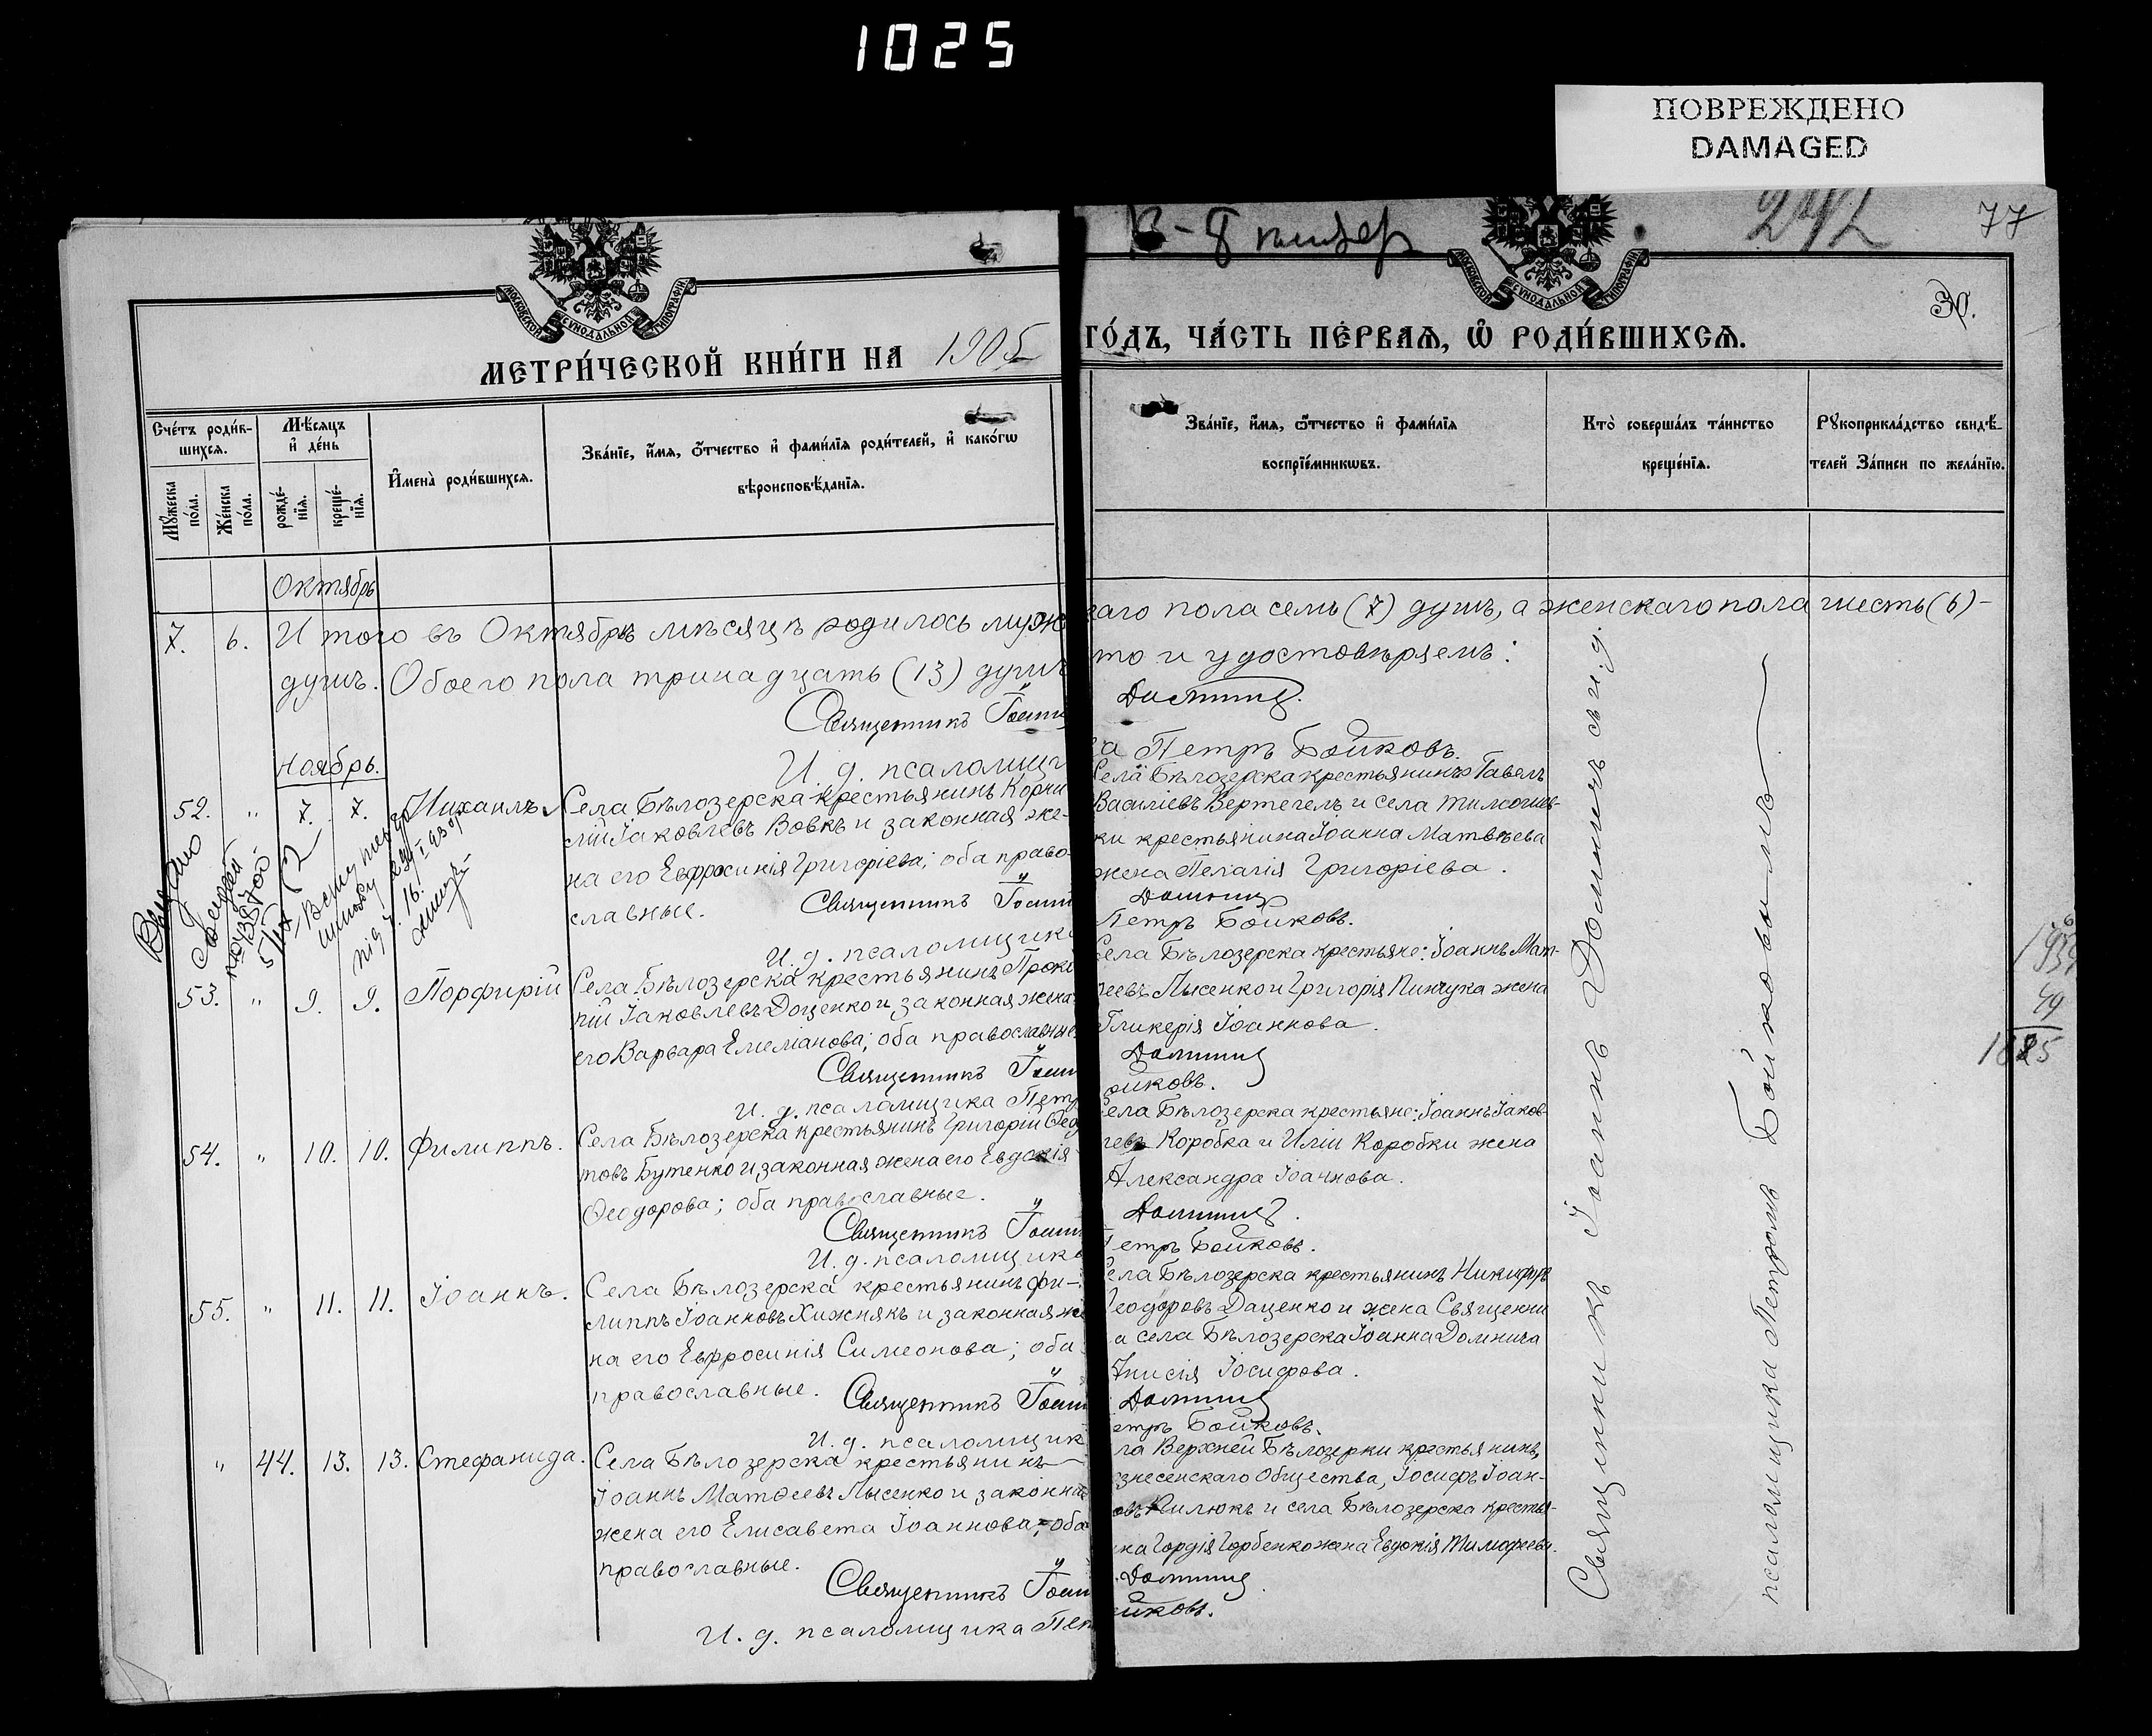 1025
ПОВРЕЖДЕНО
DAMAGED
292
77
30.
МОСКОВСКОЙ СѴНОДАЛЬНОЙ ТИПОГРАФІИ
МОСКОВСКОЙ СѴНОДАЛЬНОЙ ТИПОГРАФІИ
МЕТРИ́ЧЕСКОЙ КНИ́ГИ НА 1905
ГО́ДЪ, ЧА́СТЬ ПЕ́РВАЯ, Ѽ РОДИ́ВШИХСЯ.
Сче́тъ роди́в-
шихся.
Мѣ́сяцъ
и҆ де́нь
Мꙋ́жеска
по́ла.
Же́нска
по́ла.
рожде́-
нїя.
креще́-
нїя.
И҆мена̀ роди́вшихся.
Зва́нїе, и҆́мя, ѻ҆́тчество и҆ фами́лїя роди́телей, и҆ како́гѡ
вѣроисповѣ́данїя.
Зва́нїе, и҆́мя, ѻ҆́тчество и҆ фами́лїя
воспрїе́мникѡвъ.
Кто̀ соверша́лъ та́инство
креще́нїя.
Рꙋкоприкла́дство свидѣ́-
телей За́писи по жела́нїю.
Октябрь
7. 6. Итого въ Октябрѣ мѣсяцѣ родилось муж
каго пола семь (7) душъ, а женскаго пола шесть (6)-
душъ. Обоего пола тринадцать (13) душъ
то и удостовѣряемъ:
Священникъ Іоанн
Домнич.
И. д. псаломщи
а Петръ Бойковъ.
Ноябрь.
52. " 7. 7. Михаилъ
Села Бѣлозерска крестьянинъ Корни
лій Іаковлевъ Вовкъ и законная же-
на его Евфросинія Григоріева; оба право-
славные.
Священникъ Іоанн
И. д. псаломщика
Села Бѣлозерска крестьянинъ Павелъ
Василіевъ Вертегелъ и села Тимошев-
ки крестьянина Іоанна Матвѣева
жена Пелагія Григоріева.
Домнич
Петръ Бойковъ.
Видано
53. " 9. 9. Порфирій
Села Бѣлозерска крестьянинъ Проко
пій Іаковлевъ Доценко и законная жена
его Варвара Емеліанова; оба православные
Священникъ Іоанн
И. д. псаломщика Петр
Села Бѣлозерска крестьяне: Іоаннъ Мат-
ѳеевъ Лысенко и Григорія Пинчука жена
Гликерія Іоаннова.
Домнич
ойковъ.
1685
54. " 10. 10. Филиппъ.
Села Бѣлозерска крестьянинъ Григорій Ѳео
товъ Бутенко и законная жена его Евдокія
Ѳеодорова; оба православные.
Священникъ Іоанн
И. д. псаломщика
Села Бѣлозерска крестьяне: Іоаннъ Іаков-
левъ Коробка и Иліи Коробки жена
Александра Іоаннова.
Домнич.
Петръ Бойковъ.
55. " 11. 11. Іоаннъ.
Села Бѣлозерска крестьянинъ Фи-
липпъ Іоанновъ Хижнякъ и законная же
на его Евфросинія Симеонова; оба
православные.
Священникъ Іоанн
И. д. псаломщик
Села Бѣлозерска крестьянинъ Никифоръ
Ѳеодоровъ Даценко и жена Священни
а села Бѣлозерска Іоанна Домнича
Анисія Іосифова.
Домнич
етръ Бойковъ.
" 44. 13. 13. Стефанида.
Села Бѣлозерска крестьянинъ
Іоаннъ Матѳеевъ Лысенко и законная
жена его Елисавета Іоаннова; оба
православные.
Священникъ Іоанн
И. д. псаломщика Пет
ла Верхней Бѣлозерки крестьянинъ,
знесенскаго Общества, Іосифъ Іоан-
овъ Пилюкъ и села Бѣлозерска крестья-
на Гордія Горбенко жена Евдокія Тимофеева.
Домнич
ойковъ.
Священникъ Іоаннъ Домничъ съ и. д.
псаломщика Петромъ Бойковымъ.